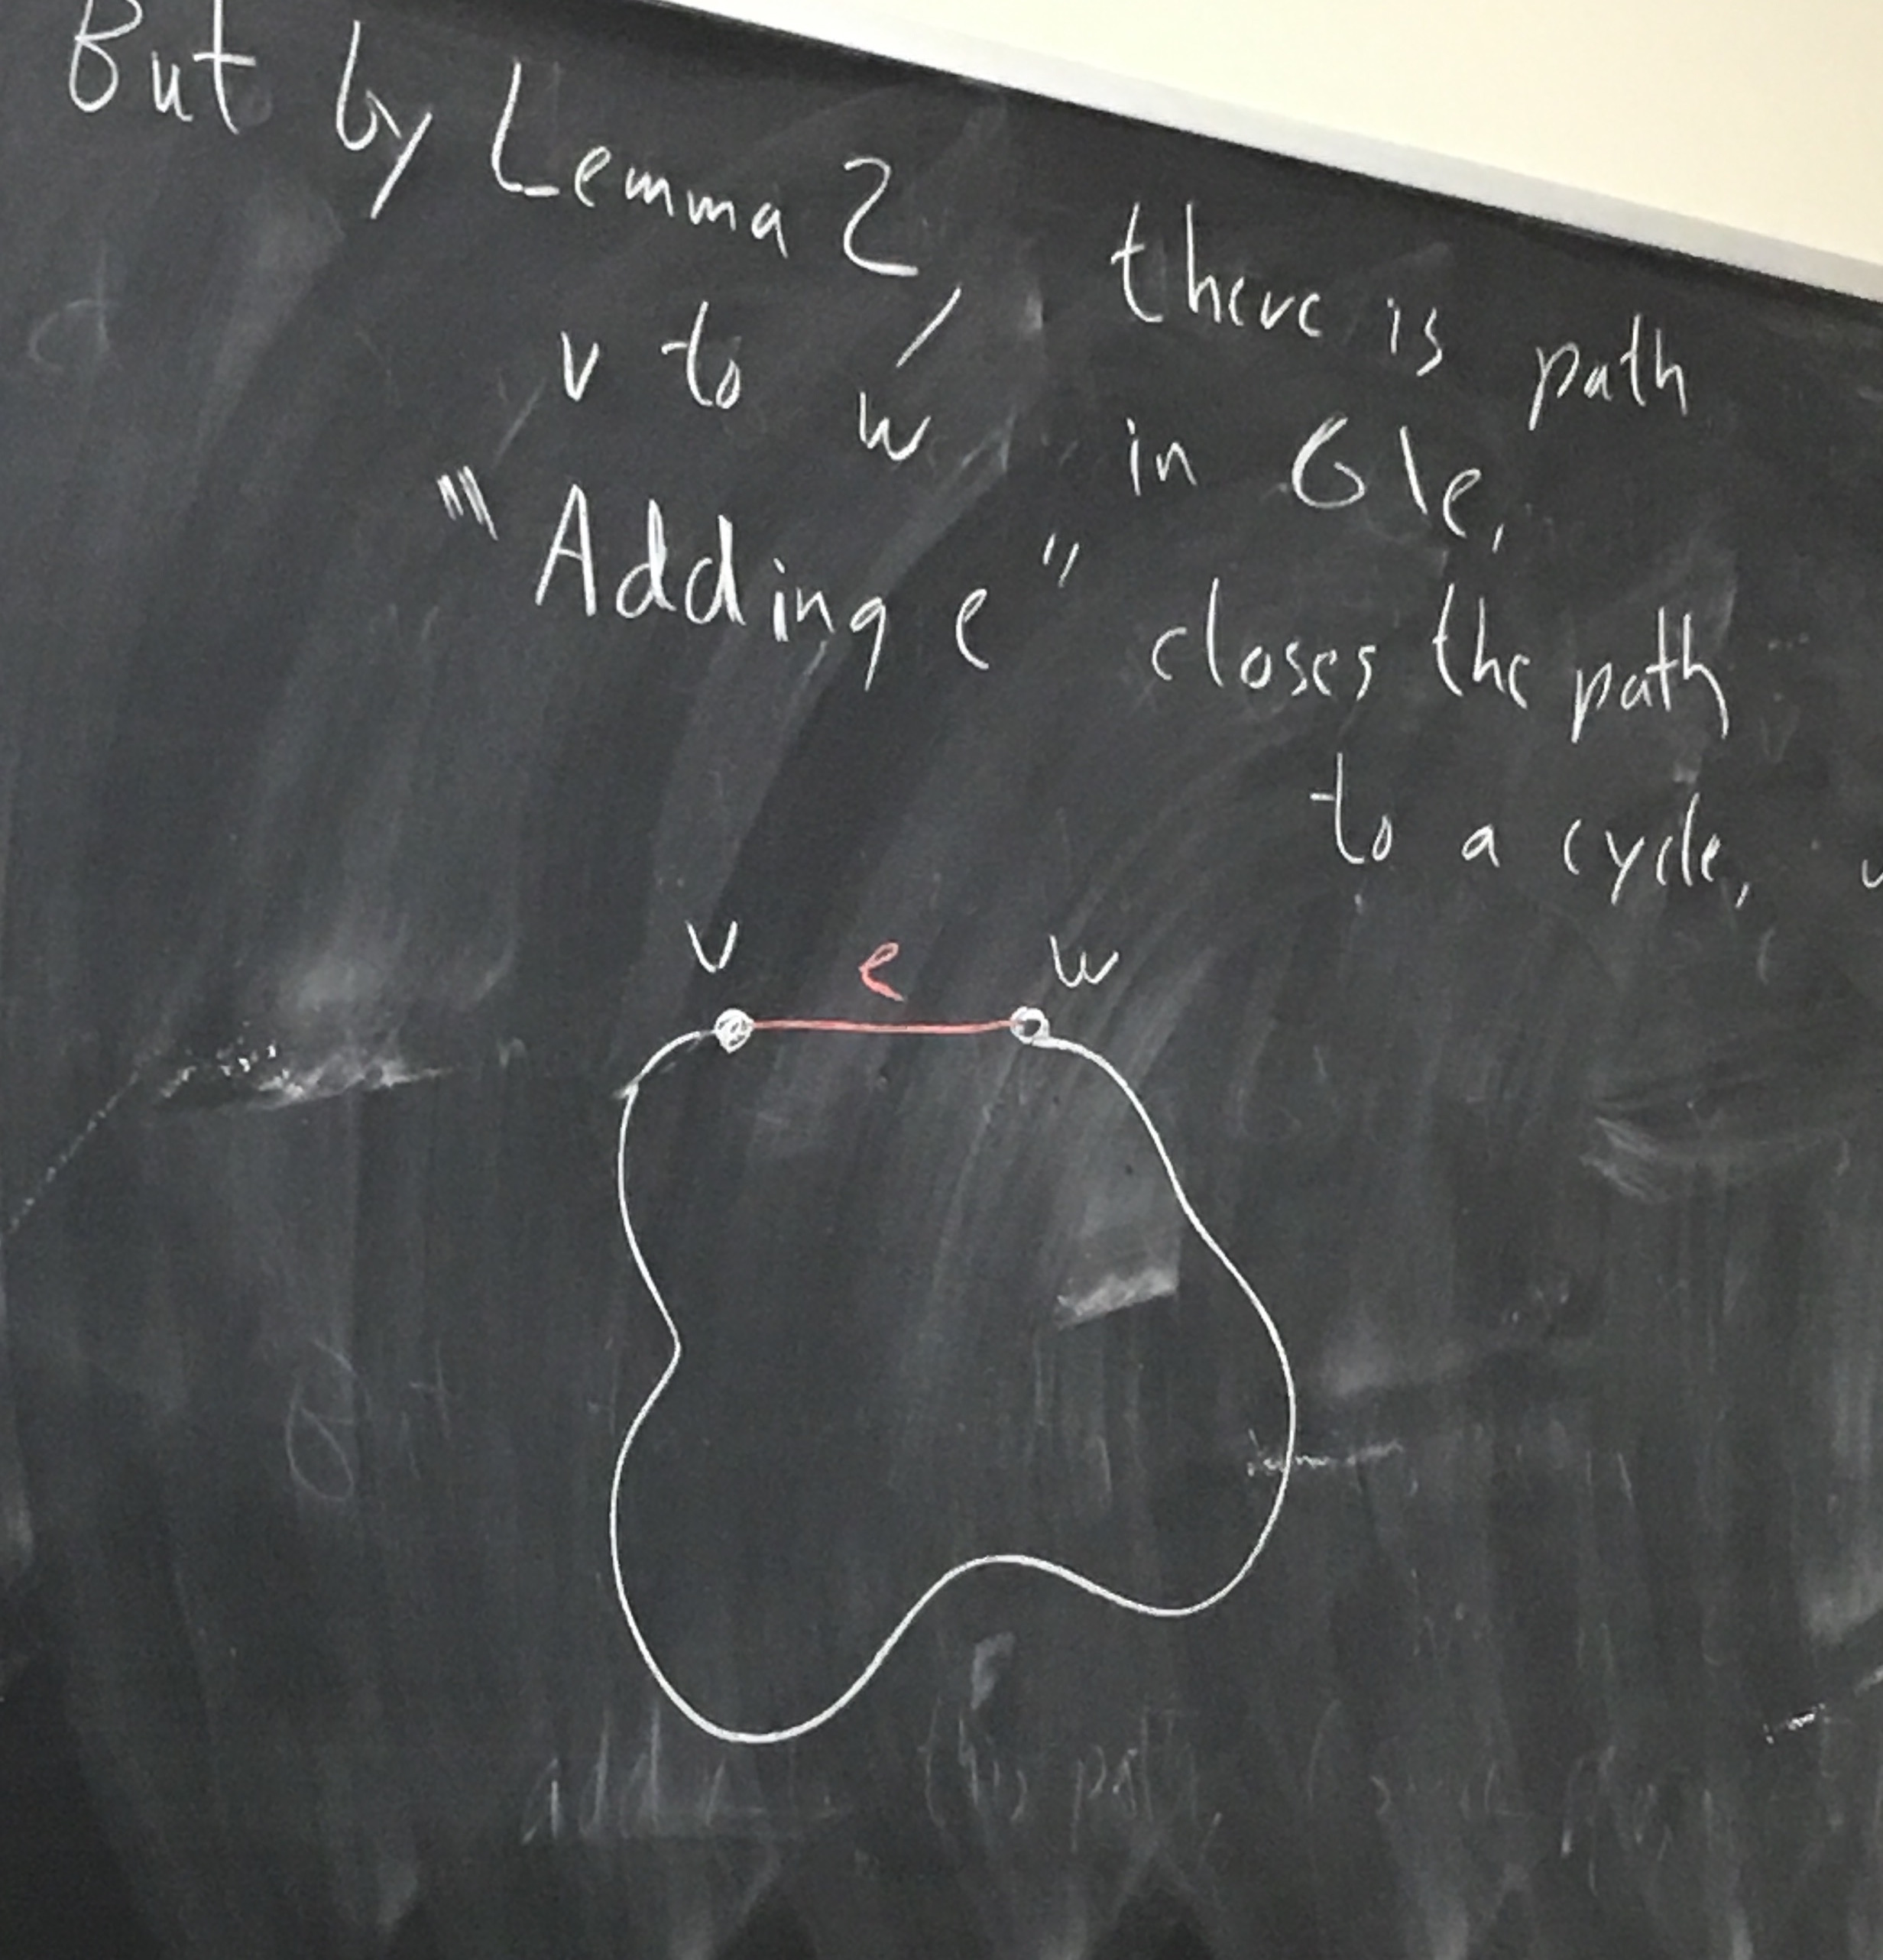 But by Lemma 2, there is path
v to w in G\e,
"Adding e" closes the path
to a cycle,
v e w